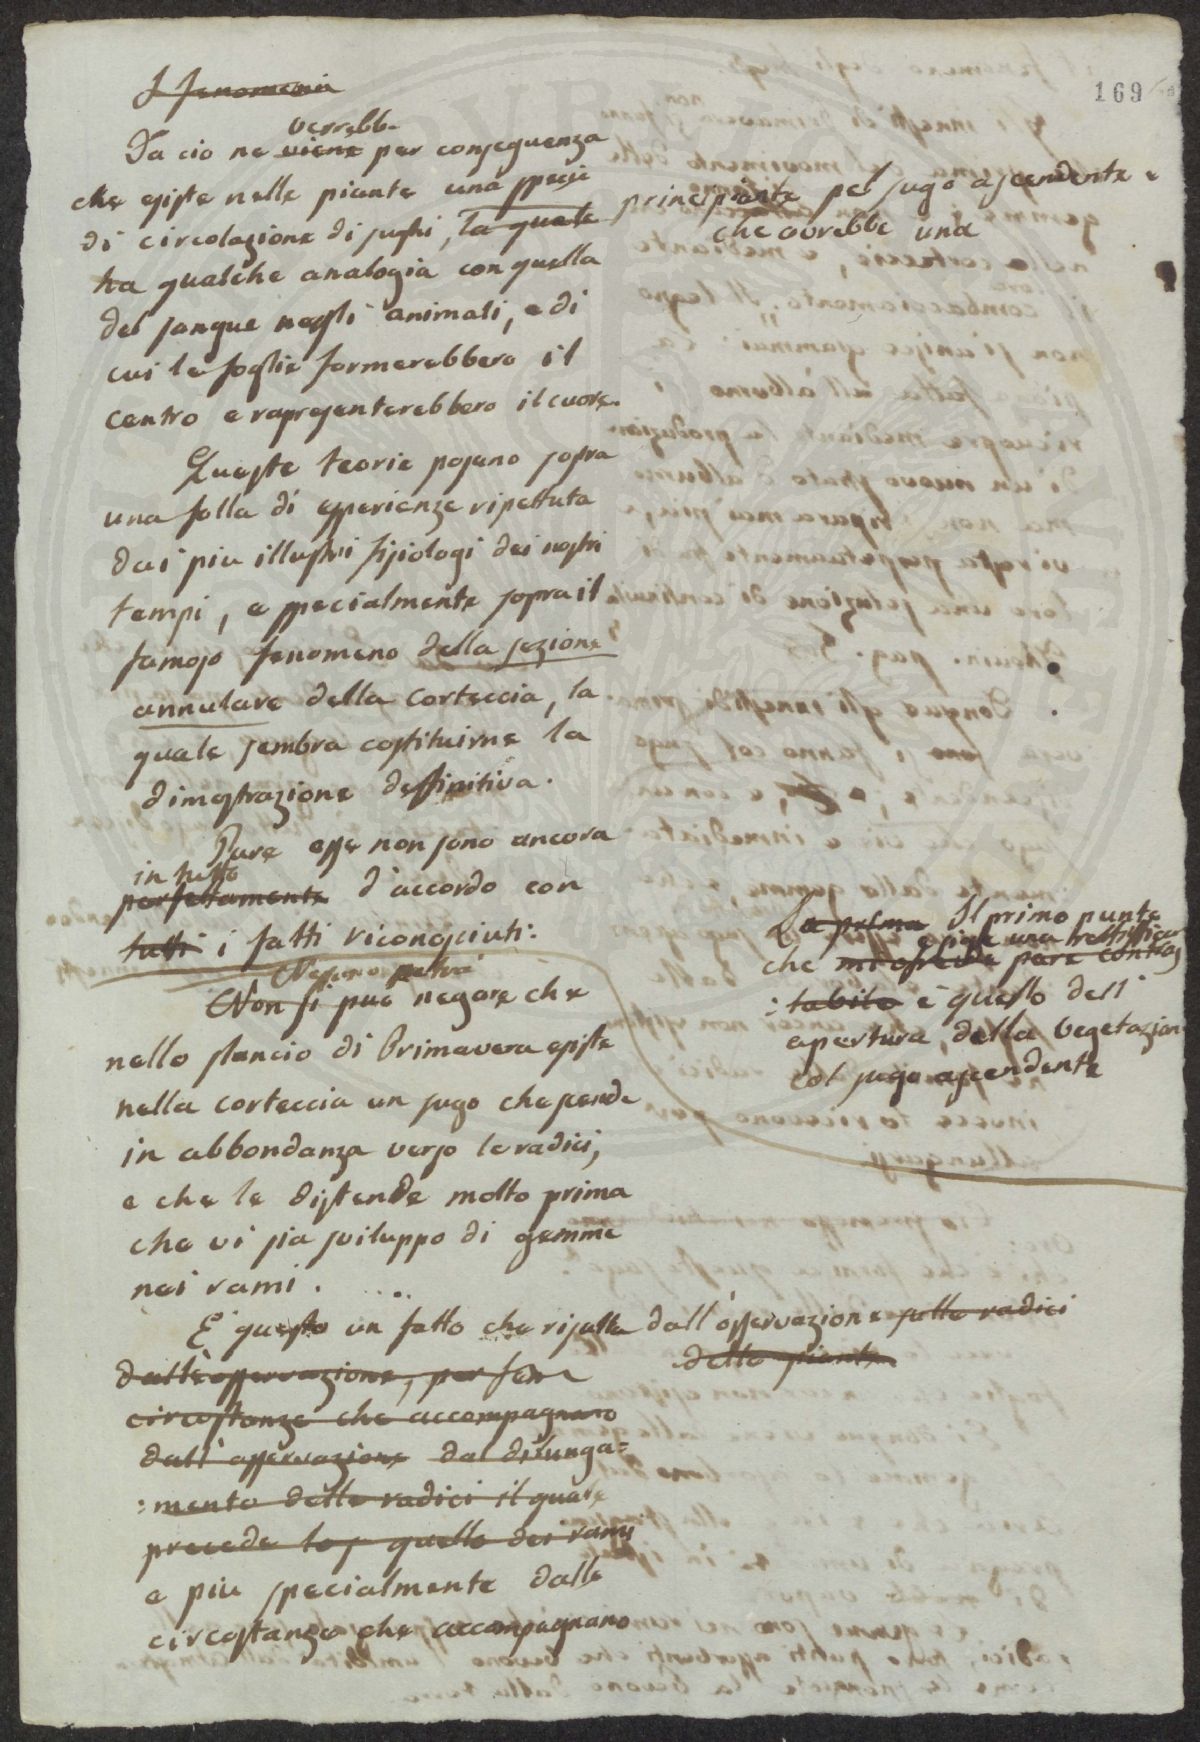 169
I fenomeni
verrebbe
Da cio ne viene per conseguenza
che esiste nelle piante una specie
di circolazione di sughi, la quale
principiante pel sugo ascendente e
che avrebbe una
ha qualche analogia con quella
del sangue negli animali, e di
cui le foglie formerebbero il
centro e rapresenterebbero il cuore.
Queste teorie posano sopra
una folla di esperienze ripettute
dai piu illustri fisiologi dei nostri
tempi, e specialmente sopra il
famoso fenomeno della sezione
annulare della corteccia, la
quale sembra costituirne la
dimostrazione deffinitiva.
Pure esse non sono ancora
in tutto
perfettamente d'accordo con
tutti i fatti riconosciuti.
La prima Il primo punto
esige una rettifficaz
che mi pare contras
:tabile è questo dell'
apertura della Vegetazione
col sugo ascendente
Nessuno potrà
Non si può negare che
nello slancio di Primavera esiste
nella corteccia un sugo che scende
in abbondanza verso le radici,
e che le distende molto prima
che vi sia sviluppo di gemme
nei rami.
E' questo un fatto che risulta dall'osservazione sulle radici
delle piante
dall'osservazione, per
circostanze che accompagnano
dall'osservazione dal dilunga=
:mento delle radici il quale
precede quello dei rami
e piu specialmente dalle
circostanze che accompagnano